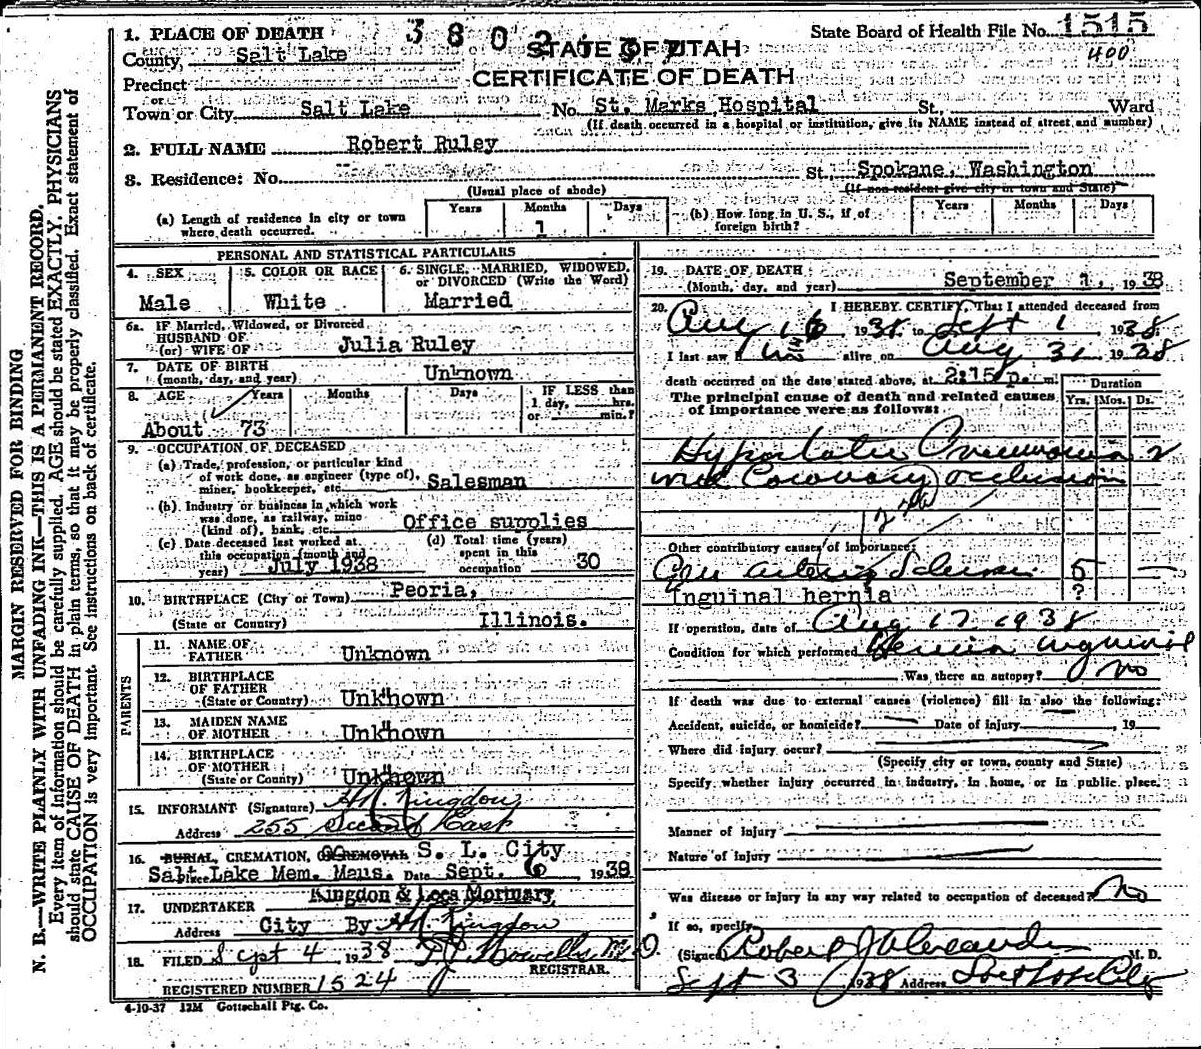 MARGIN RESERVED FOR BINDING
N. B.—WRITE PLAINLY WITH UNFADING INK—THIS IS A PERMANENT RECORD.
Every item of information should be carefully supplied. AGE should be stated EXACTLY. PHYSICIANS
should state CAUSE OF DEATH in plain terms, so that it may be properly classified. Exact statement of
OCCUPATION is very important. See instructions on back of certificate.
State Board of Health File No. 1515
400
STATE OF UTAH
CERTIFICATE OF DEATH
1. PLACE OF DEATH
County, Salt Lake
Precinct
or
Town or City Salt Lake No. St. Marks Hospital St., Ward
(If death occurred in a hospital or institution, give its NAME instead of street and number)
2. FULL NAME Robert Ruley
3. Residence: No. St., Spokane, Washington
(Usual place of abode) (If non-resident give city or town and State)
(a) Length of residence in city or town where death occurred. Years Months 1 Days
(b) How long in U. S., if of foreign birth? Years Months Days
PERSONAL AND STATISTICAL PARTICULARS
4. SEX Male
5. COLOR OR RACE White
6. SINGLE, MARRIED, WIDOWED, or DIVORCED (Write the Word) Married
6a. IF Married, Widowed, or Divorced
HUSBAND OF
(or) WIFE OF Julia Ruley
7. DATE OF BIRTH
(month, day, and year) Unknown
8. AGE Years Months Days IF LESS than
1 day, hrs.
or min.?
About 73
9. OCCUPATION OF DECEASED
(a) Trade, profession, or particular kind
of work done, as engineer (type of),
miner, bookkeeper, etc. Salesman
(b) Industry or business in which work
was done, as railway, mine
(kind of), bank, etc. Office supplies
(c) Date deceased last worked at
this occupation (month and
year) July 1938
(d) Total time (years)
spent in this
occupation 30
10. BIRTHPLACE (City or Town) Peoria,
(State or Country) Illinois.
PARENTS
11. NAME OF
FATHER Unknown
12. BIRTHPLACE
OF FATHER
(State or Country) Unknown
13. MAIDEN NAME
OF MOTHER Unknown
14. BIRTHPLACE
OF MOTHER
(State or Country) Unknown
15. INFORMANT (Signature) Kingdon
Address 255 Second East
16. BURIAL, CREMATION, OR REMOVAL S. L. City
Place Salt Lake Mem. Maus. Date Sept. 6 1938
17. UNDERTAKER Kingdon & Lees Mortuary
Address City By Kingdon
18. FILED Sept 4, 1938
REGISTRAR.
REGISTERED NUMBER 1524
4-10-37 12M Gottschall Ptg. Co.
19. DATE OF DEATH
(Month, day, and year) September 1, 1938
20. I HEREBY CERTIFY, That I attended deceased from
Aug 16 1938 to Sept 1 1938
I last saw him alive on Aug 31 1938
death occurred on the date stated above, at 2:15 p. m.
The principal cause of death and related causes
of importance were as follows:
Duration
Yrs. Mos. Ds.
Hypostatic Pneumonia 2
and Coronary occlusion
Other contributory causes of importance:
Gen arterio Sclerosis 5
Inguinal hernia ?
If operation, date of Aug 17 1938
Condition for which performed Hernia inguinal
Was there an autopsy? no
If death was due to external causes (violence) fill in also the following:
Accident, suicide, or homicide? Date of injury 19
Where did injury occur?
(Specify city or town, county and State)
Specify whether injury occurred in industry, in home, or in public place.
Manner of injury
Nature of injury
Was disease or injury in any way related to occupation of deceased? No
If so, specify
(Signed) Robert J Alexander M. D.
Sept 3 1938 Address